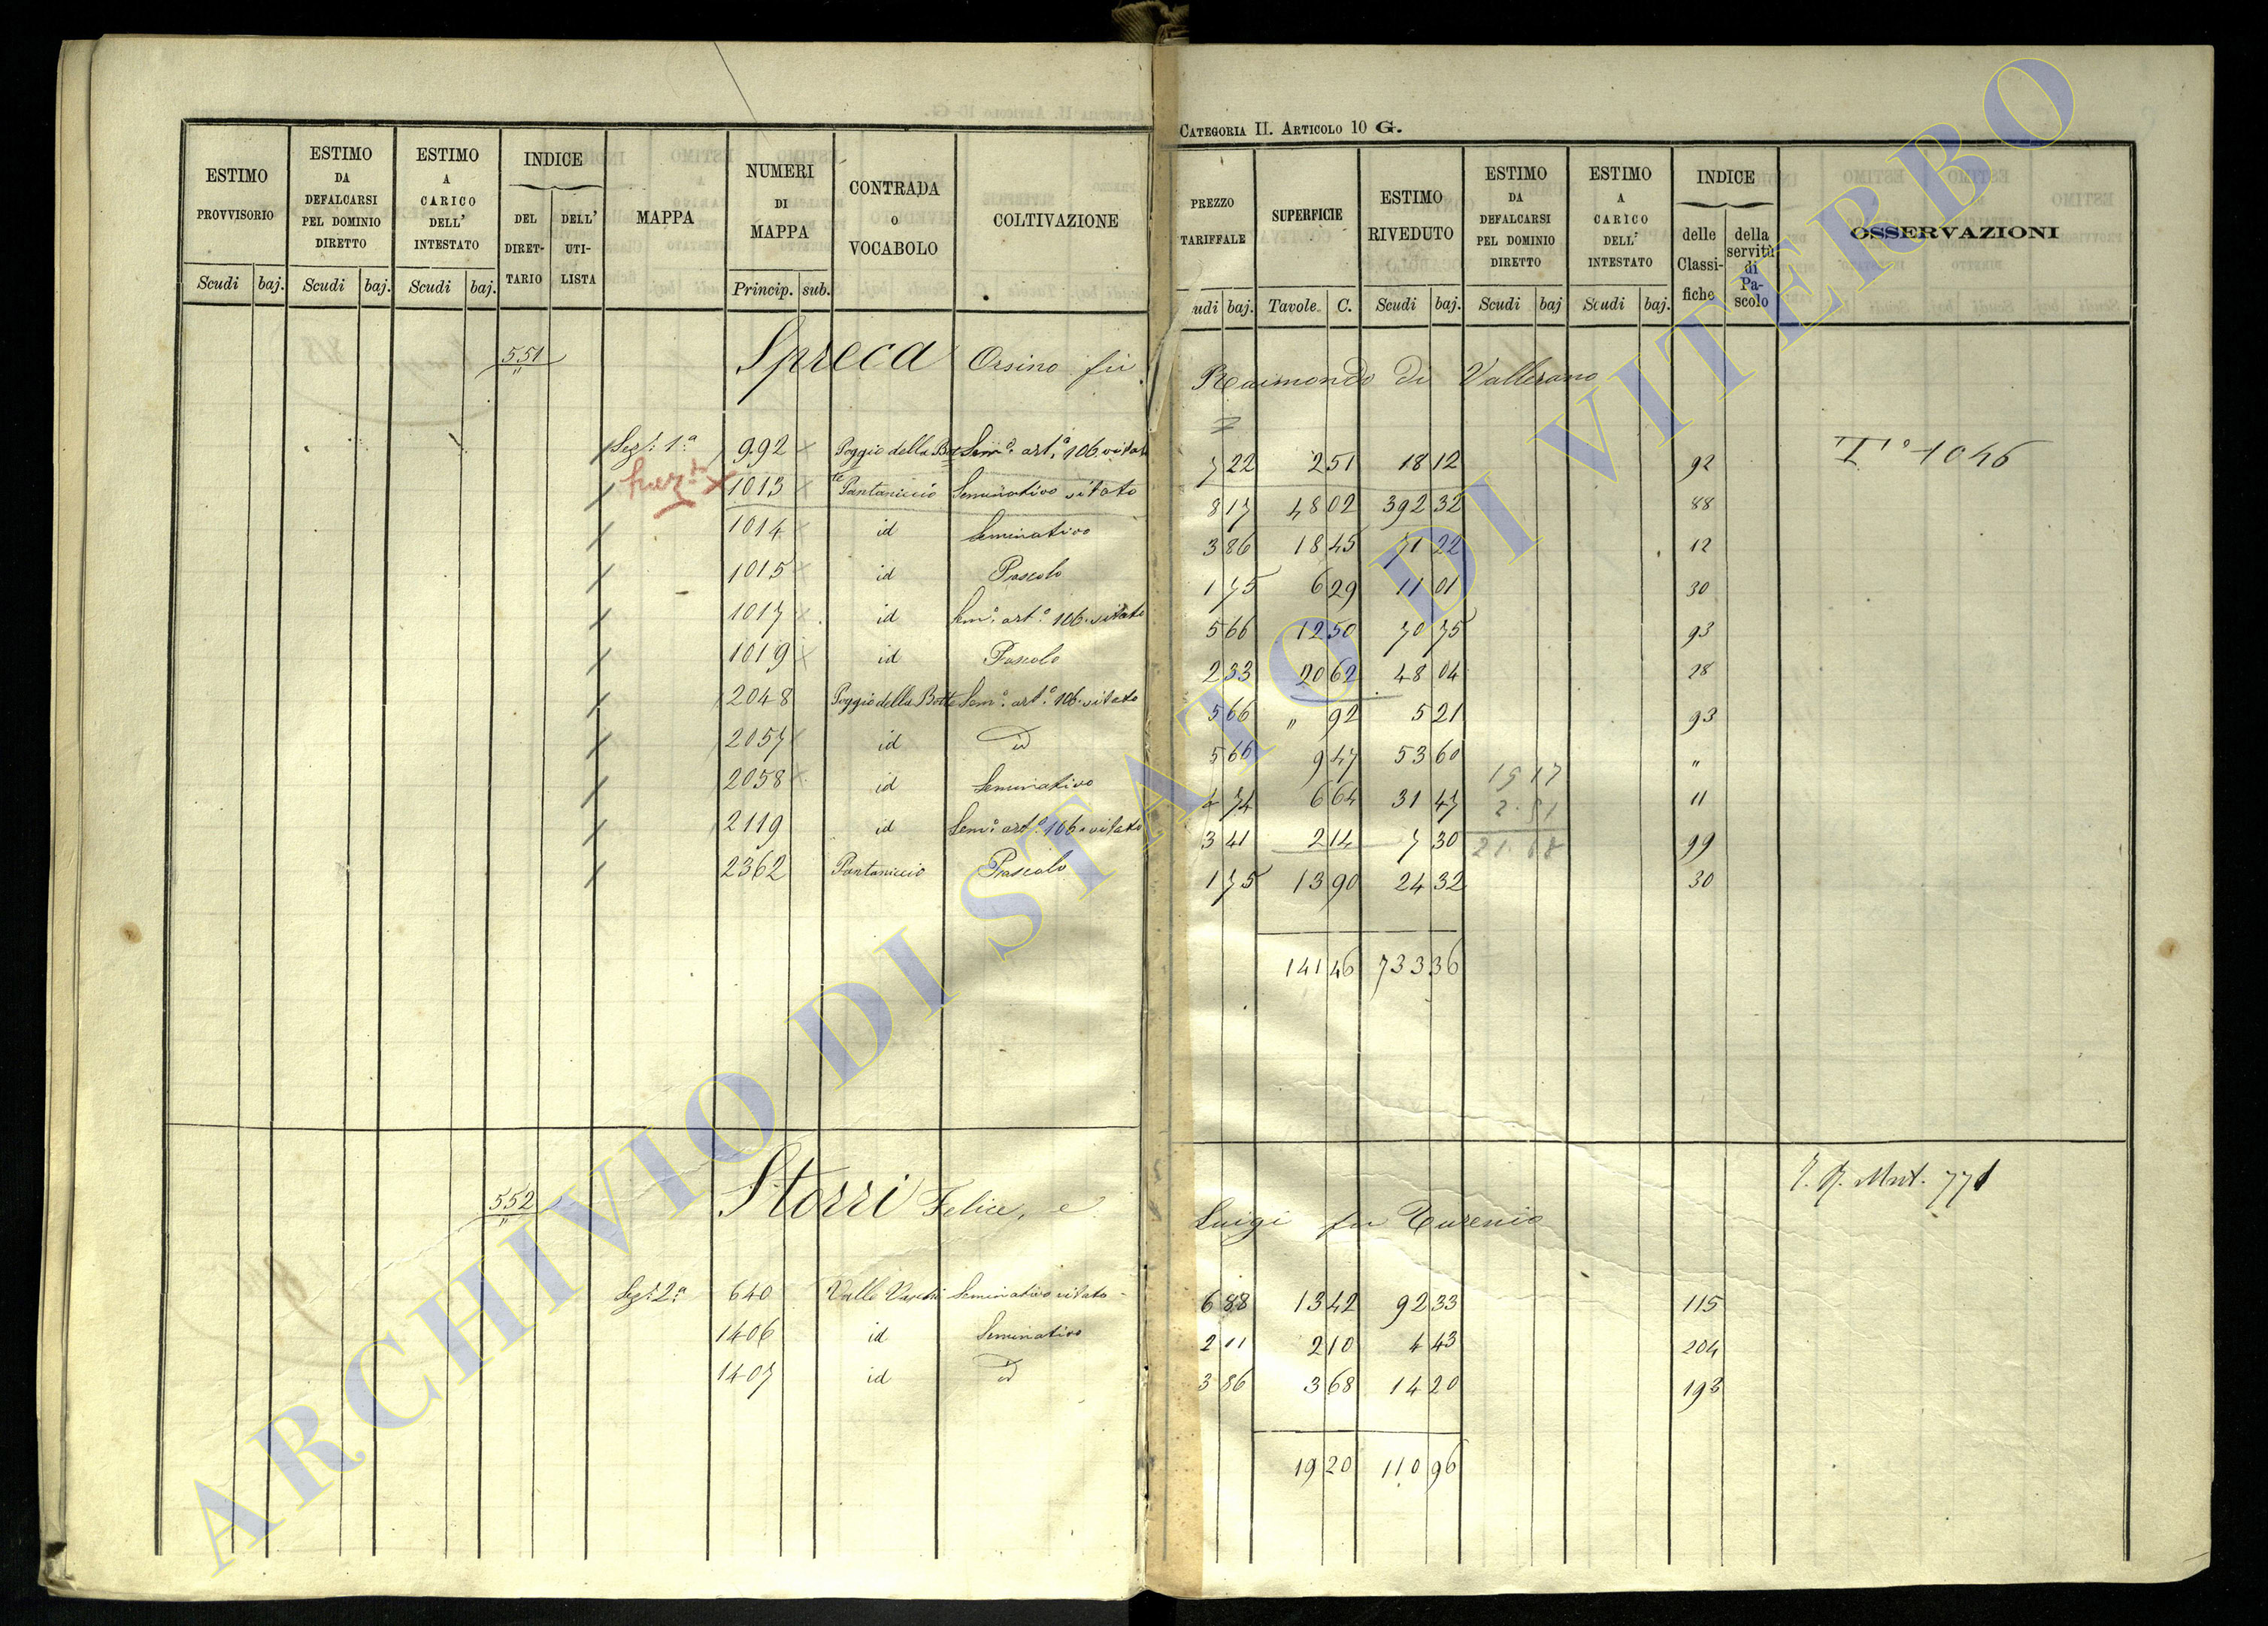 CATEGORIA II. ARTICOLO 10 G.
ESTIMO PROVVISORIO Scudi baj.
ESTIMO DA DEFALCARSI PEL DOMINIO DIRETTO Scudi baj.
ESTIMO A CARICO DELL' INTESTATO Scudi baj.
INDICE DEL DIRETTARIO DELL' UTILISTA
MAPPA
NUMERI DI MAPPA Princip. sub.
CONTRADA O VOCABOLO
COLTIVAZIONE
PREZZO TARIFFALE udi baj.
SUPERFICIE Tavole C.
ESTIMO RIVEDUTO Scudi baj.
ESTIMO DA DEFALCARSI PEL DOMINIO DIRETTO Scudi baj
ESTIMO A CARICO DELL' INTESTATO Scudi baj.
INDICE delle Classifiche della servitù di Pascolo
OSSERVAZIONI
551 Spreca Orsino fu Raimondo di Vallerano
Sez. 1.a 992 Poggio della Botte Sem.o art.o 106 vitato 7 22 2 51 18 12 92
1013 Pantaniccio Seminativo vitato 8 17 48 02 392 32 88
1014 id Seminativo 3 86 18 45 71 22 12
1015 id Pascolo 1 75 6 29 11 01 30
1017 id Sem.o art.o 106 vitato 5 66 12 50 70 75 93
1019 id Pascolo 2 33 20 62 48 04 28
2048 Poggio della Botte Sem.o art.o 106 vitato 5 66 " 92 5 21 93
2057 id id 5 66 9 47 53 60 "
2058 id Seminativo 4 74 6 64 31 47 11
2119 id Sem.o art.o 106 vitato 3 41 2 14 7 30 99
2362 Pantaniccio Pascolo 1 75 13 90 24 32 30
141 46 733 36
552 Storri Felice, e Luigi fu Eugenio
Sez. 2.a 640 Valle Seminativo vitato 6 88 13 42 92 33 115
1406 id Seminativo 2 11 2 10 4 43 204
1407 id id 3 86 3 68 14 20 193
19 20 110 96
ARCHIVIO DI STATO DI VITERBO